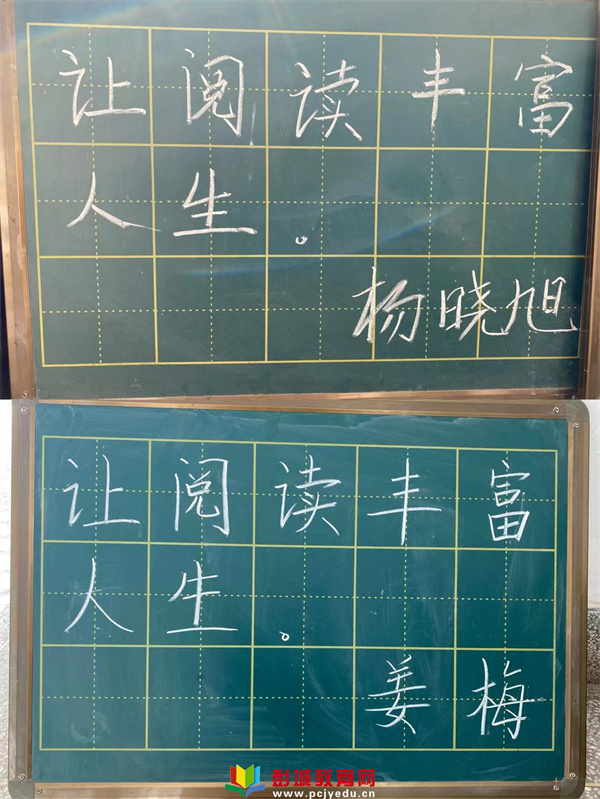 让阅读丰富
人生。
杨晓旭
让阅读丰富
人生。
姜梅
彭城教育网
www.pcjyedu.cn